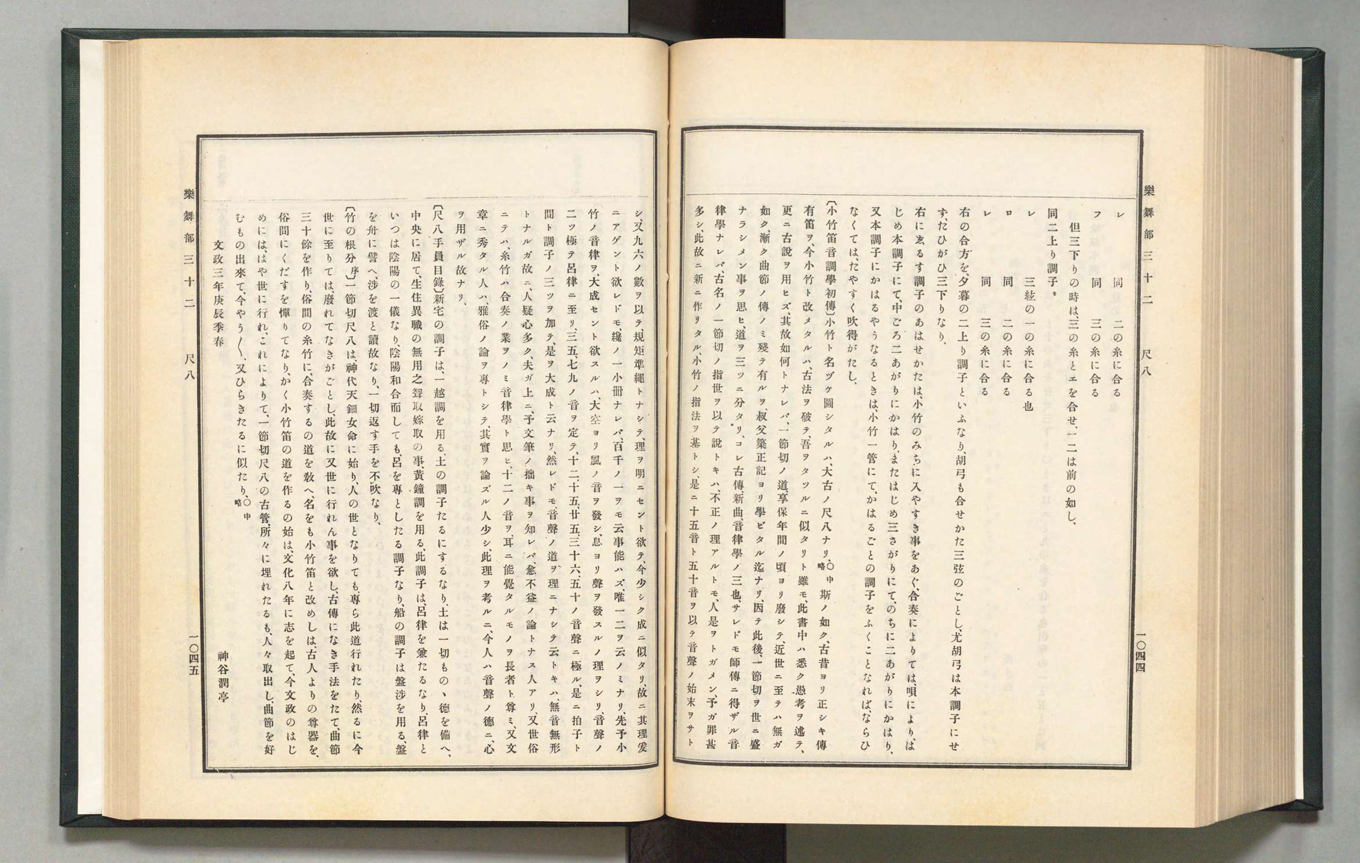 樂舞部三十二 尺八
一〇四四
レ 同 二の糸に合る
フ 同 三の糸に合る
但三下りの時は、三の糸とエを合せ、一二は前の如し、
同二上り調子。
レ 三絃の一の糸に合る也
ロ 同 二の糸に合る
レ 同 三の糸に合る
右の合方を、夕暮の二上り調子といふなり、胡弓も合せかた三弦のごとし、尤胡弓は本調子にせ
ず、たひがひ三下りなり、
右にゑるす調子のあはせかたは、小竹のみちに入やすき事をあぐ、合奏によりては、唄により、は
じめ本調子にて、中ごろ二あがりにかはり、またはじめ三さがりにてのちに二あがりにかはり、
又本調子にかはるやうなるときは、小竹一管にて、かはるごとの調子をふくことなれば、ならひ
なくては、たやすく吹得がたし、
〔小竹笛音調學初傳〕小竹ト名ヅケ圖シタルハ、大古ノ尺八ナリ、〇中略 斯ノ如ク、古昔ヨリ正シキ傳
有笛ヲ、今小竹ト改メタルハ、古法ヲ破テ、吾ヲタツルニ似タリト雖モ、此書中ハ悉ク愚考ヲ述テ、
更ニ古說ヲ用ヒズ、其故如何トナレバ、一節切ノ道、享保年間ノ頃ヨリ廢シテ、近世ニ至テハ無ガ
如ク、漸ク曲節ノ傳ノミ殘テ有ルヲ、叔父簗正記ヨリ學ビタル迄ナリ、因テ此後、一節切ヲ世ニ盛
ナラシメン事ヲ思ヒ、道ヲ三ツニ分タリ、コレ古傳、新曲、音律學ノ三也、サレドモ師傳ニ得ザル音
律學ナレバ、古名ノ一節切ノ指世ヲ以テ說トキハ、不正ノ理アルトモ、人是ヲトガメン、予ガ罪甚
多シ、此故ニ新ニ作リタル、小竹ノ指法ヲ基トシ、是ニ十五音ト五十音ヲ以テ音聲ノ始末ヲサト
シ、又九六ノ數ヲ以テ規矩準繩トナシテ、理ヲ明ニセント欲テ、今少シク成ニ似タリ、故ニ其理爰
ニアゲント欲レドモ、纔ノ一小冊ナレバ、百千ノ一ヲモ云事能ハズ、唯一二ヲ云ノミナリ、先予小
竹ノ音律ヲ、大成セント欲スルハ、大空ヨリ風ノ音ヲ發シ、息ヨリ聲ヲ發スルノ理ヲシリ、音聲ノ
二ツ極テ呂律ニ至リ、三五七九ノ音ヲ定テ、十二、十五、廿五、三十六、五十ノ音聲ニ極ル、是ニ拍子ト
間ト調子ノ三ツヲ加テ、是ヲ大成ト云ナリ、然レドモ、音聲ノ道ヲ理ニナシテ云トキハ、無音無形
トナルガ故ニ、人疑心多ク、夫ガ上ニ、予文筆ノ拙キ事ヲ知レバ、愈不益ノ論トナス人アリ、又世俗
ニテハ、糸竹ハ合奏ノ業ヲノミ音律學ト思ヒ、十二ノ音ヲ、耳ニ能覺タルモノヲ長者ト尊ミ、又文
章ニ秀タル人ハ、雅俗ノ論ヲ專トシテ、其實ヲ論ズル人少シ、此理ヲ考ルニ、今人ハ音聲ノ德ニ、心
ヲ用ザル故ナリ、
〔尺八手員目錄〕新宅の調子は、一越調を用る、土の調子たるにするなり、土は一切ものヽ德を備へ、
中央に居て、生住異職の無用之聲、取嫁取の事、黃鐘調を用る、此調子は呂律を兼たるなり、呂律と
いつは陰陽の一儀なり、陰陽和合而しても、呂を專としたる調子なり、船の調子は盤涉を用る、盤
を舟に譬へ、涉を渡と讀故なり、一切返す手を不吹なり、
〔竹の根分序〕一節切尺八は、神代天鈿女命に始り、人の世となりても專ら此道行れたり、然るに今
世に至りては、廢れてなきがごとし、此故に又世に行れん事を欲し、古傳になき手法をたて曲節
三十餘を作り、俗間の糸竹に、合奏するの道を敎へ、名をも小竹笛と改めしは、古人よりの尊器を、
俗間にくだすを憚りてなり、かく小竹笛の道を作るの始は、文化八年に志を起て、今文政のはじ
めにははや世に行れ、これによりて、一節切尺八の古管、所々に埋れたるも、人々取出し、曲節を好
むもの出來て、今やう〳〵又ひらきたるに似たり、〇中略
文政三年庚辰季春 神谷潤亭
樂舞部三十二 尺八
一〇四五